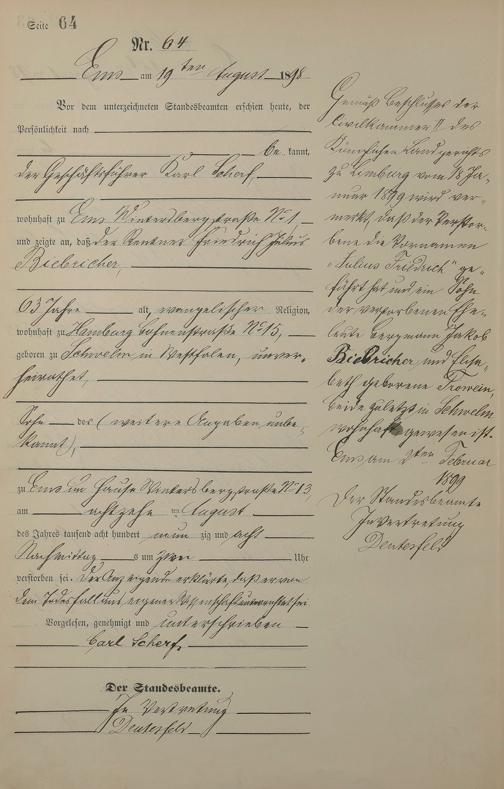 Seite 64
Nr. 64
Ems am 19ten August 1898
Vor dem unterzeichneten Standesbeamten erschien heute, der
Persönlichkeit nach
bekannt,
der Geschäftsführer Karl Scherf,
wohnhaft zu Ems Wintersbergstraße No 1
und zeigte an, daß der Rentner Friedrich Julius
Biebricher,
63 Jahre alt, evangelischer Religion,
wohnhaft zu Hamburg Bohnenstraße No 15,
geboren zu Schwelm in Westfalen, unver-
heirathet,
Sohn des (weitere Angaben unbe-
kannt),
zu Ems im Hause Wintersbergstraße No 13,
am achtzehn ten August
des Jahres tausend acht hundert neun zig und acht
Nachmittags um zwei Uhr
verstorben sei. Der Anzeigende erklärte, daß er von
dem Todesfall aus eigener Wissenschaft unterrichtet sei.
Vorgelesen, genehmigt und unterschrieben
Carl Scherf.
Der Standesbeamte.
In Vertretung
Deuterfeld
Gemäß Beschlusses der
Civilkammer II des
Königlichen Landgerichts
zu Limburg vom 18 Ja-
nuar 1899 wird ver-
merkt, daß der Verstor-
bene die Vornamen
"Julius Friedrich" ge-
führt hat und ein Sohn
der verstorbenen Ehe-
leute Bergmann Jakob
Biebricher und Elisa-
beth geborene Trowein,
beide zuletzt in Schwelm
wohnhaft gewesen ist.
Ems, am 2ten Februar
1899
Der Standesbeamte
In Vertretung
Deuterfeld